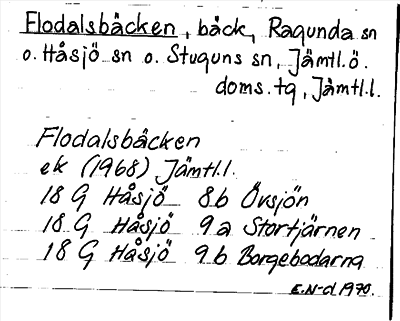 Flodalsbäcken, bäck, Ragunda sn
o. Håsjö sn o. Stuguns sn, Jämtl.ö.
doms.tg, Jämtl.l.
Flodalsbäcken
ek (1968) Jämtl.l.
18 G Håsjö 8b Övsjön
18 G Håsjö 9a Stortjärnen
18 G Håsjö 9b Borgebodarna
E.N-d 1970.